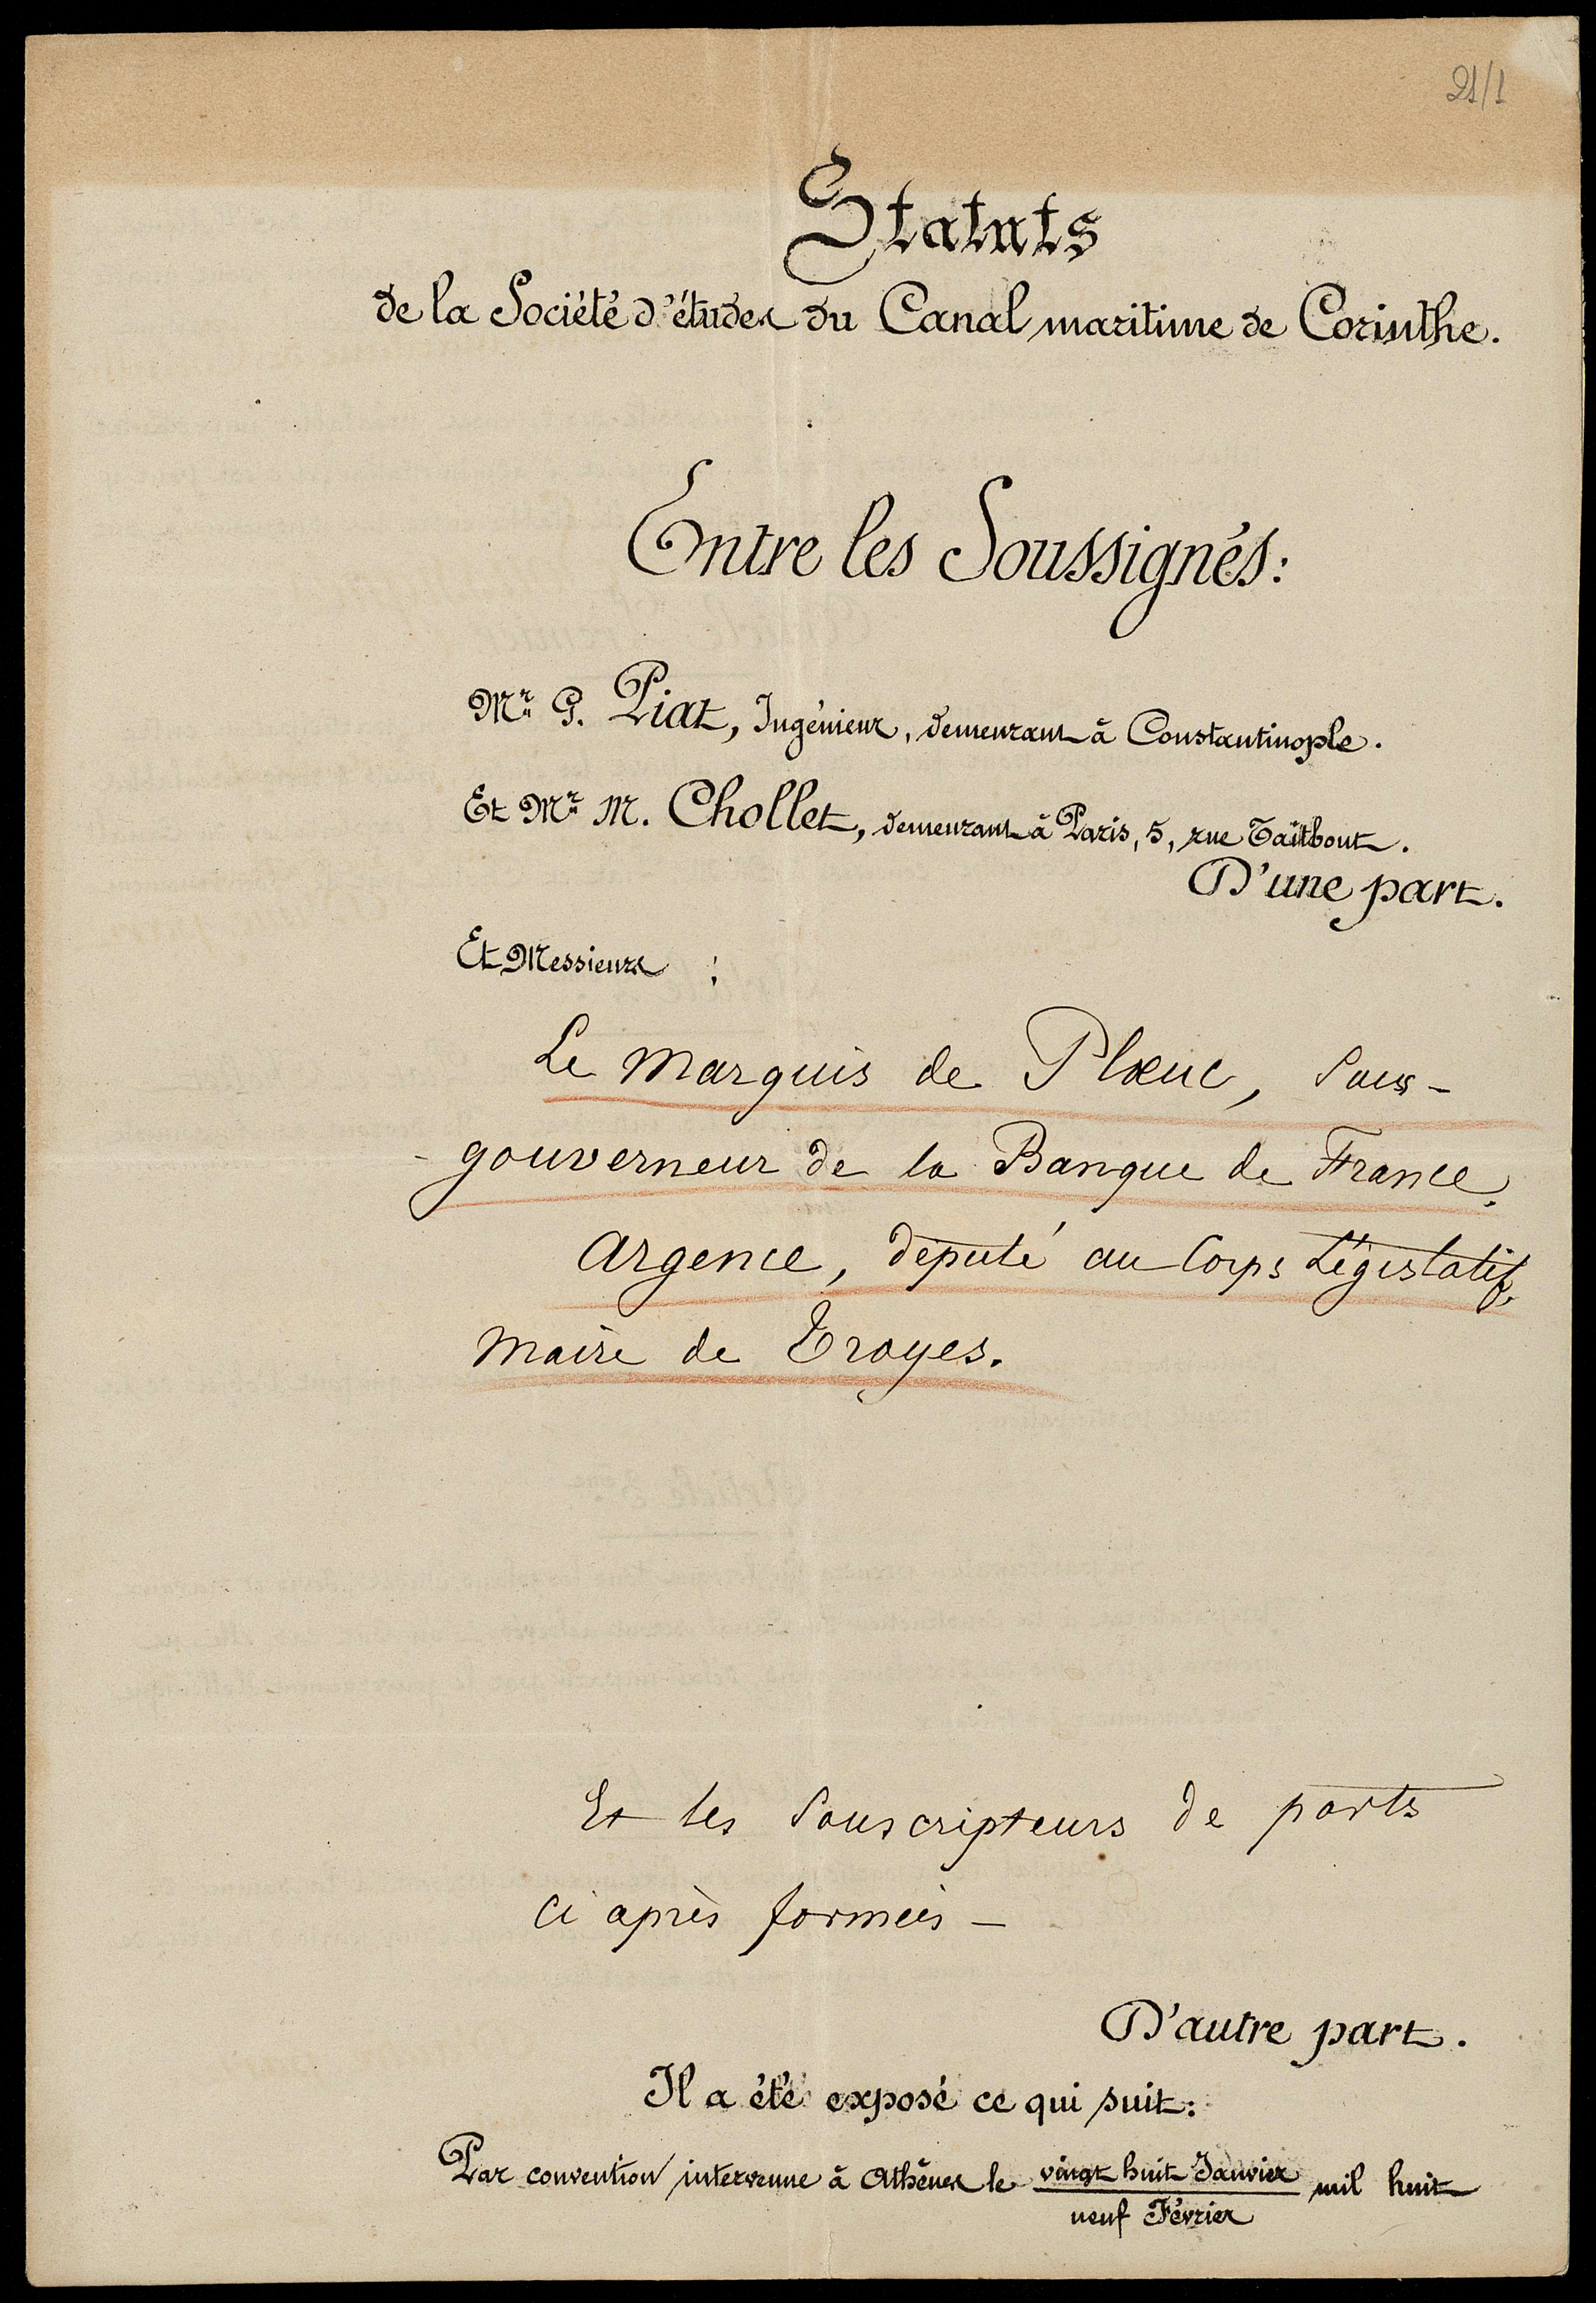 21/1
Statuts
de la Société d'études du Canal maritime de Corinthe.
Entre les Soussignés:
Mr G. Piat, Ingénieur, demeurant à Constantinople.
Et Mr M. Chollet, demeurant à Paris, 5, rue Taitbout.
D'une part.
Et Messieurs :
Le Marquis de Plœuc, Sous-
- gouverneur de la Banque de France.
Argence, député au Corps Législatif,
Maire de Troyes.
Et les Souscripteurs de parts
Ci après formées –
D'autre part.
Il a été exposé ce qui suit:
Par convention intervenue à Athènes le vingt huit Janvier mil huit
neuf Février